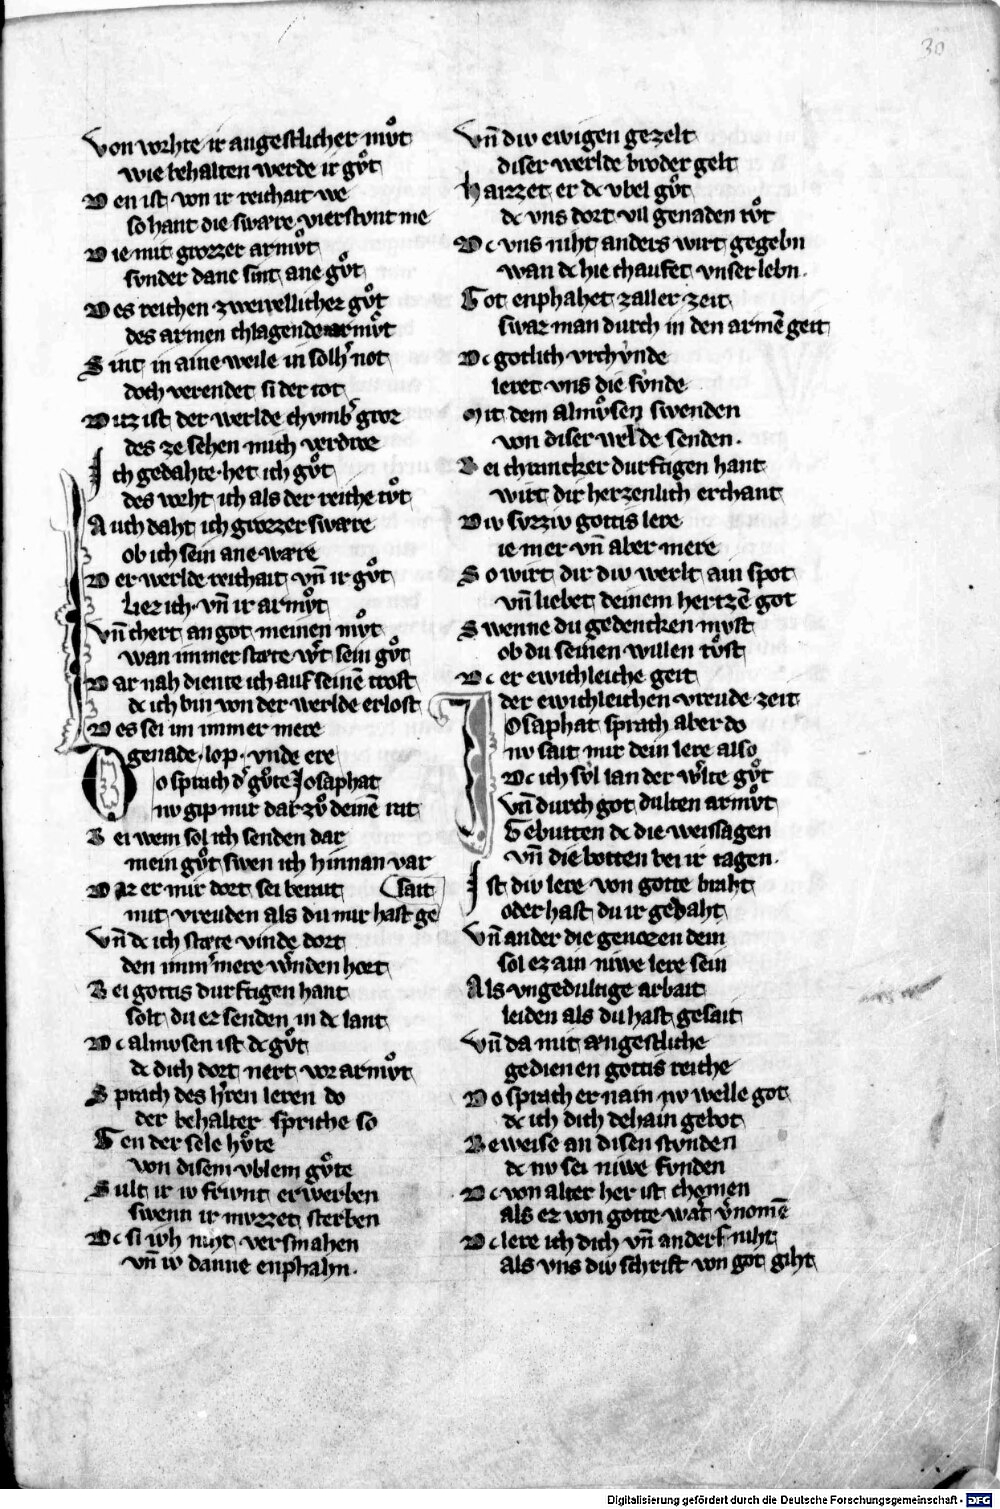 30
Von vorhte ir angestlicher mv̊t
wie behalten werde ir gv̊t
Den ist von ir reichait we
so hant die swære vierstvnt me
Die mit grozzer armv̊t
svnder danc sint ane gv̊t
Des reichen zweivellicher gv̊t
des armen chlagende armv̊t
Sint in aine weile in solher not
doch verendet si der tot
Ditz ist der werlde chvmber groz
des ze sehen mich verdroz
Ich gedahte het ich gv̊t
des vorht ich als der reiche tv̊t
Auch daht ich grozzer swære
ob ich sein ane wære
Der werlde reichait vn̄ ir gv̊t
Liez ich vn̄ ir armv̊t
Vn̄ chert an got meinen mv̊t
wan immer stæte wert sein gv̊t
Dar nah diente ich auf seinē trost
dc ich bin von der werlde erlost
Des sei im immer mere
genade lop vnde ere
Do sprach der gv̊te Josaphat
nv gip mir dar zv̊ deinē rat
Bei wem sol ich senden dar
mein gv̊t swen ich hinnan var
Daz er mir dort sei berait
sait
mit vreuden als du mir hast ge
Vn̄ dc ich stæte vinde dort
den immer mere wernden hort
Bei gottis durftigen hant
solt du ez senden in dc lant
Dc almvsen ist dc gv̊t
dc dich dort nert vor armv̊t
Sprach des herren leren do
der behalter spriche so
Gen der sele hv̊te
von disem vblem gv̊te
Sult ir iv frivnt erwerben
swenn ir mvzzet sterben
Dc si ivh niht versmahen
vn̄ iv danne enphahn.
Vn̄ div ewigen gezelt
diser werlde broder gelt
Haizzet er dc vbel gv̊t
dc vns dort vil genaden tv̊t
Dc vns niht anders wirt gegebn
wan dc hie chaufet vnser lebn.
Got enphahet zaller zeit
swaz man durch in den armē geit
Dc gotlich vrchvnde
leret vns die svnde
Mit dem almv̊sen swenden
von diser werlde senden.
Bei chrancker durftigen hant
wirt dir herzenlich erchant
Div svzziv gottis lere
ie mer vn̄ aber mere
So wirt dir div werlt ain spot
vn̄ liebet deinem hertzē got
Swenne du gedencken mvst
ob du seinen willen tv̊st
Dc er ewichleiche geit
der ewichleichen vreude zeit
Josaphat sprach aber do
nv sait mir dein lere also
Dc ich svl lan der werlte gv̊t
vn̄ durch got dulten armv̊t
Gebutten dc die weissagen
vn̄ die botten bei ir tagen.
Ist div lere von gotte braht
oder hast du ir gedaht
Vn̄ ander die genozen dein
sol ez ain niwe lere sein
Als vngedultige arbait
leiden als du hast gesait
Vn̄ da mit ængestliche
gedienen gottis reiche
Do sprach er nain nv welle got
dc ich dich dehain gebot
Beweise an disen stvnden
dc nv sei niwe fvnden
Dc von alter her ist chomen
als ez von gotte wart vernomē
Dc lere ich dich vn̄ anders niht
als vns div schrift von got giht
Digitalisierung gefördert durch die Deutsche Forschungsgemeinschaft - DFG